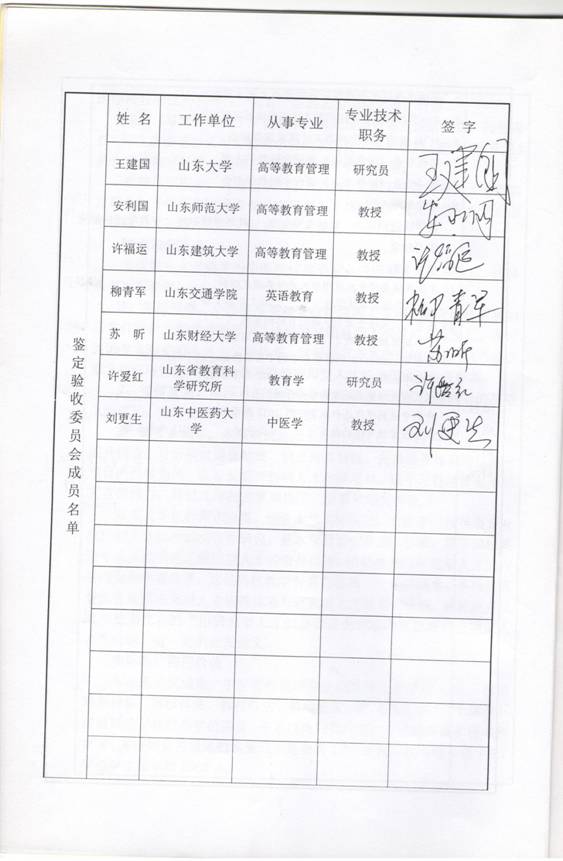 姓 名 工作单位 从事专业 专业技术职务 签 字
王建国 山东大学 高等教育管理 研究员 王建国
安利国 山东师范大学 高等教育管理 教授 安利国
许福运 山东建筑大学 高等教育管理 教授 许福运
柳青军 山东交通学院 英语教育 教授 柳青军
苏 昕 山东财经大学 高等教育管理 教授 苏昕
许爱红 山东省教育科学研究所 教育学 研究员 许爱红
刘更生 山东中医药大学 中医学 教授 刘更生
鉴定验收委员会成员名单